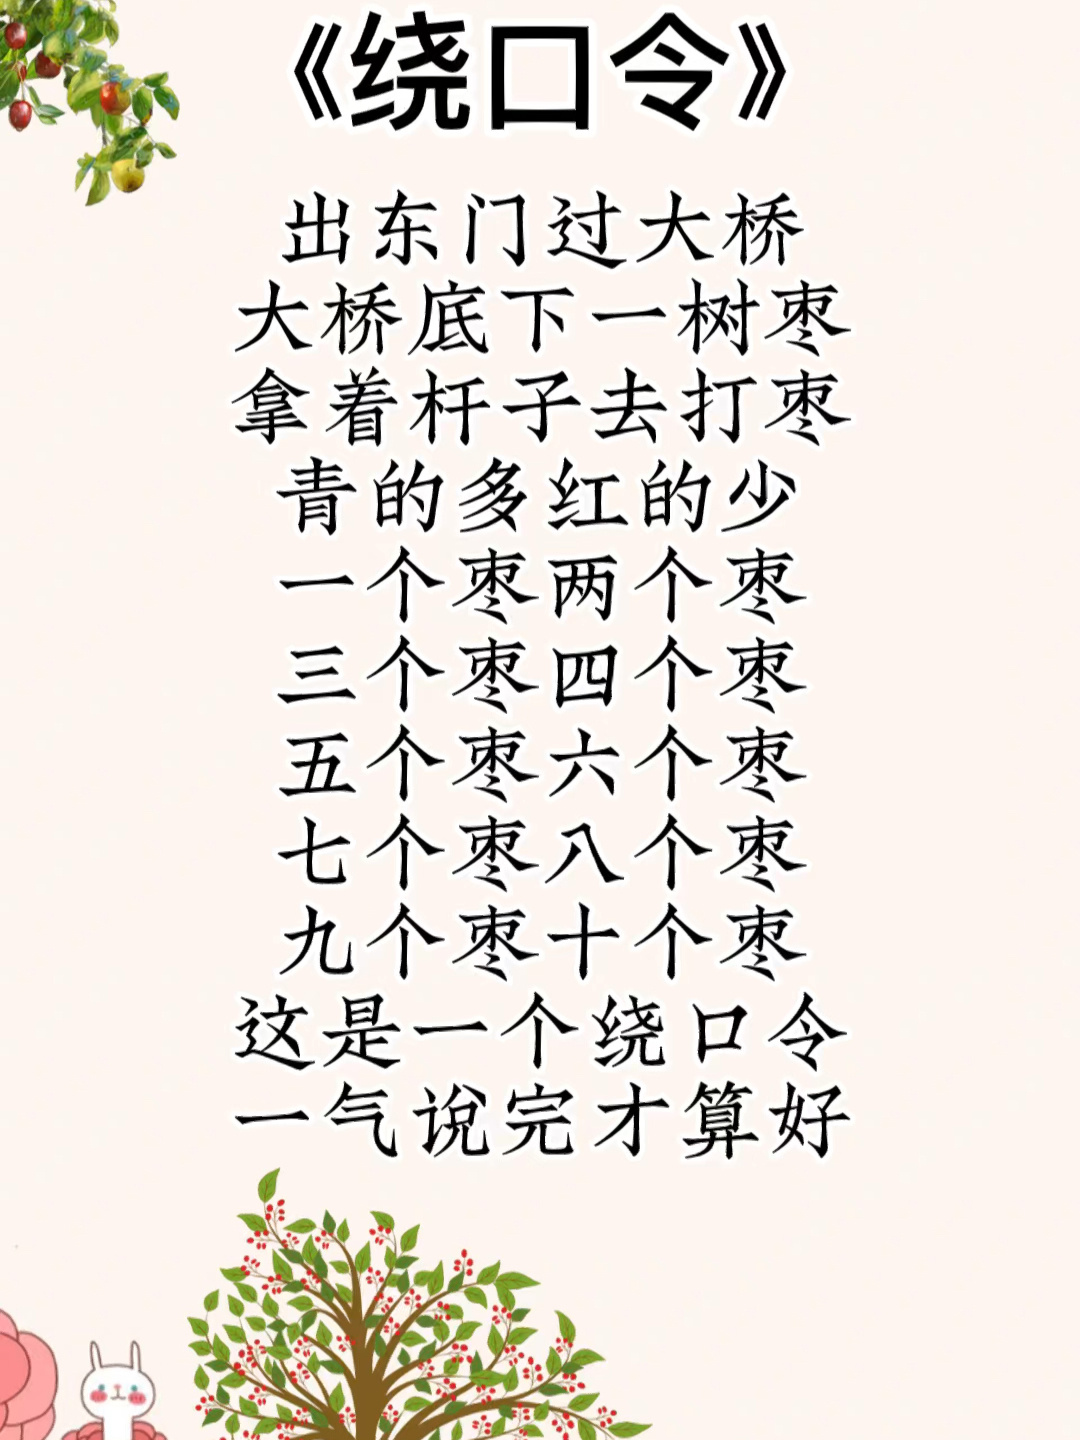 《绕口令》
出东门过大桥
大桥底下一树枣
拿着杆子去打枣
青的多红的少
一个枣两个枣
三个枣四个枣
五个枣六个枣
七个枣八个枣
九个枣十个枣
这是一个绕口令
一气说完才算好